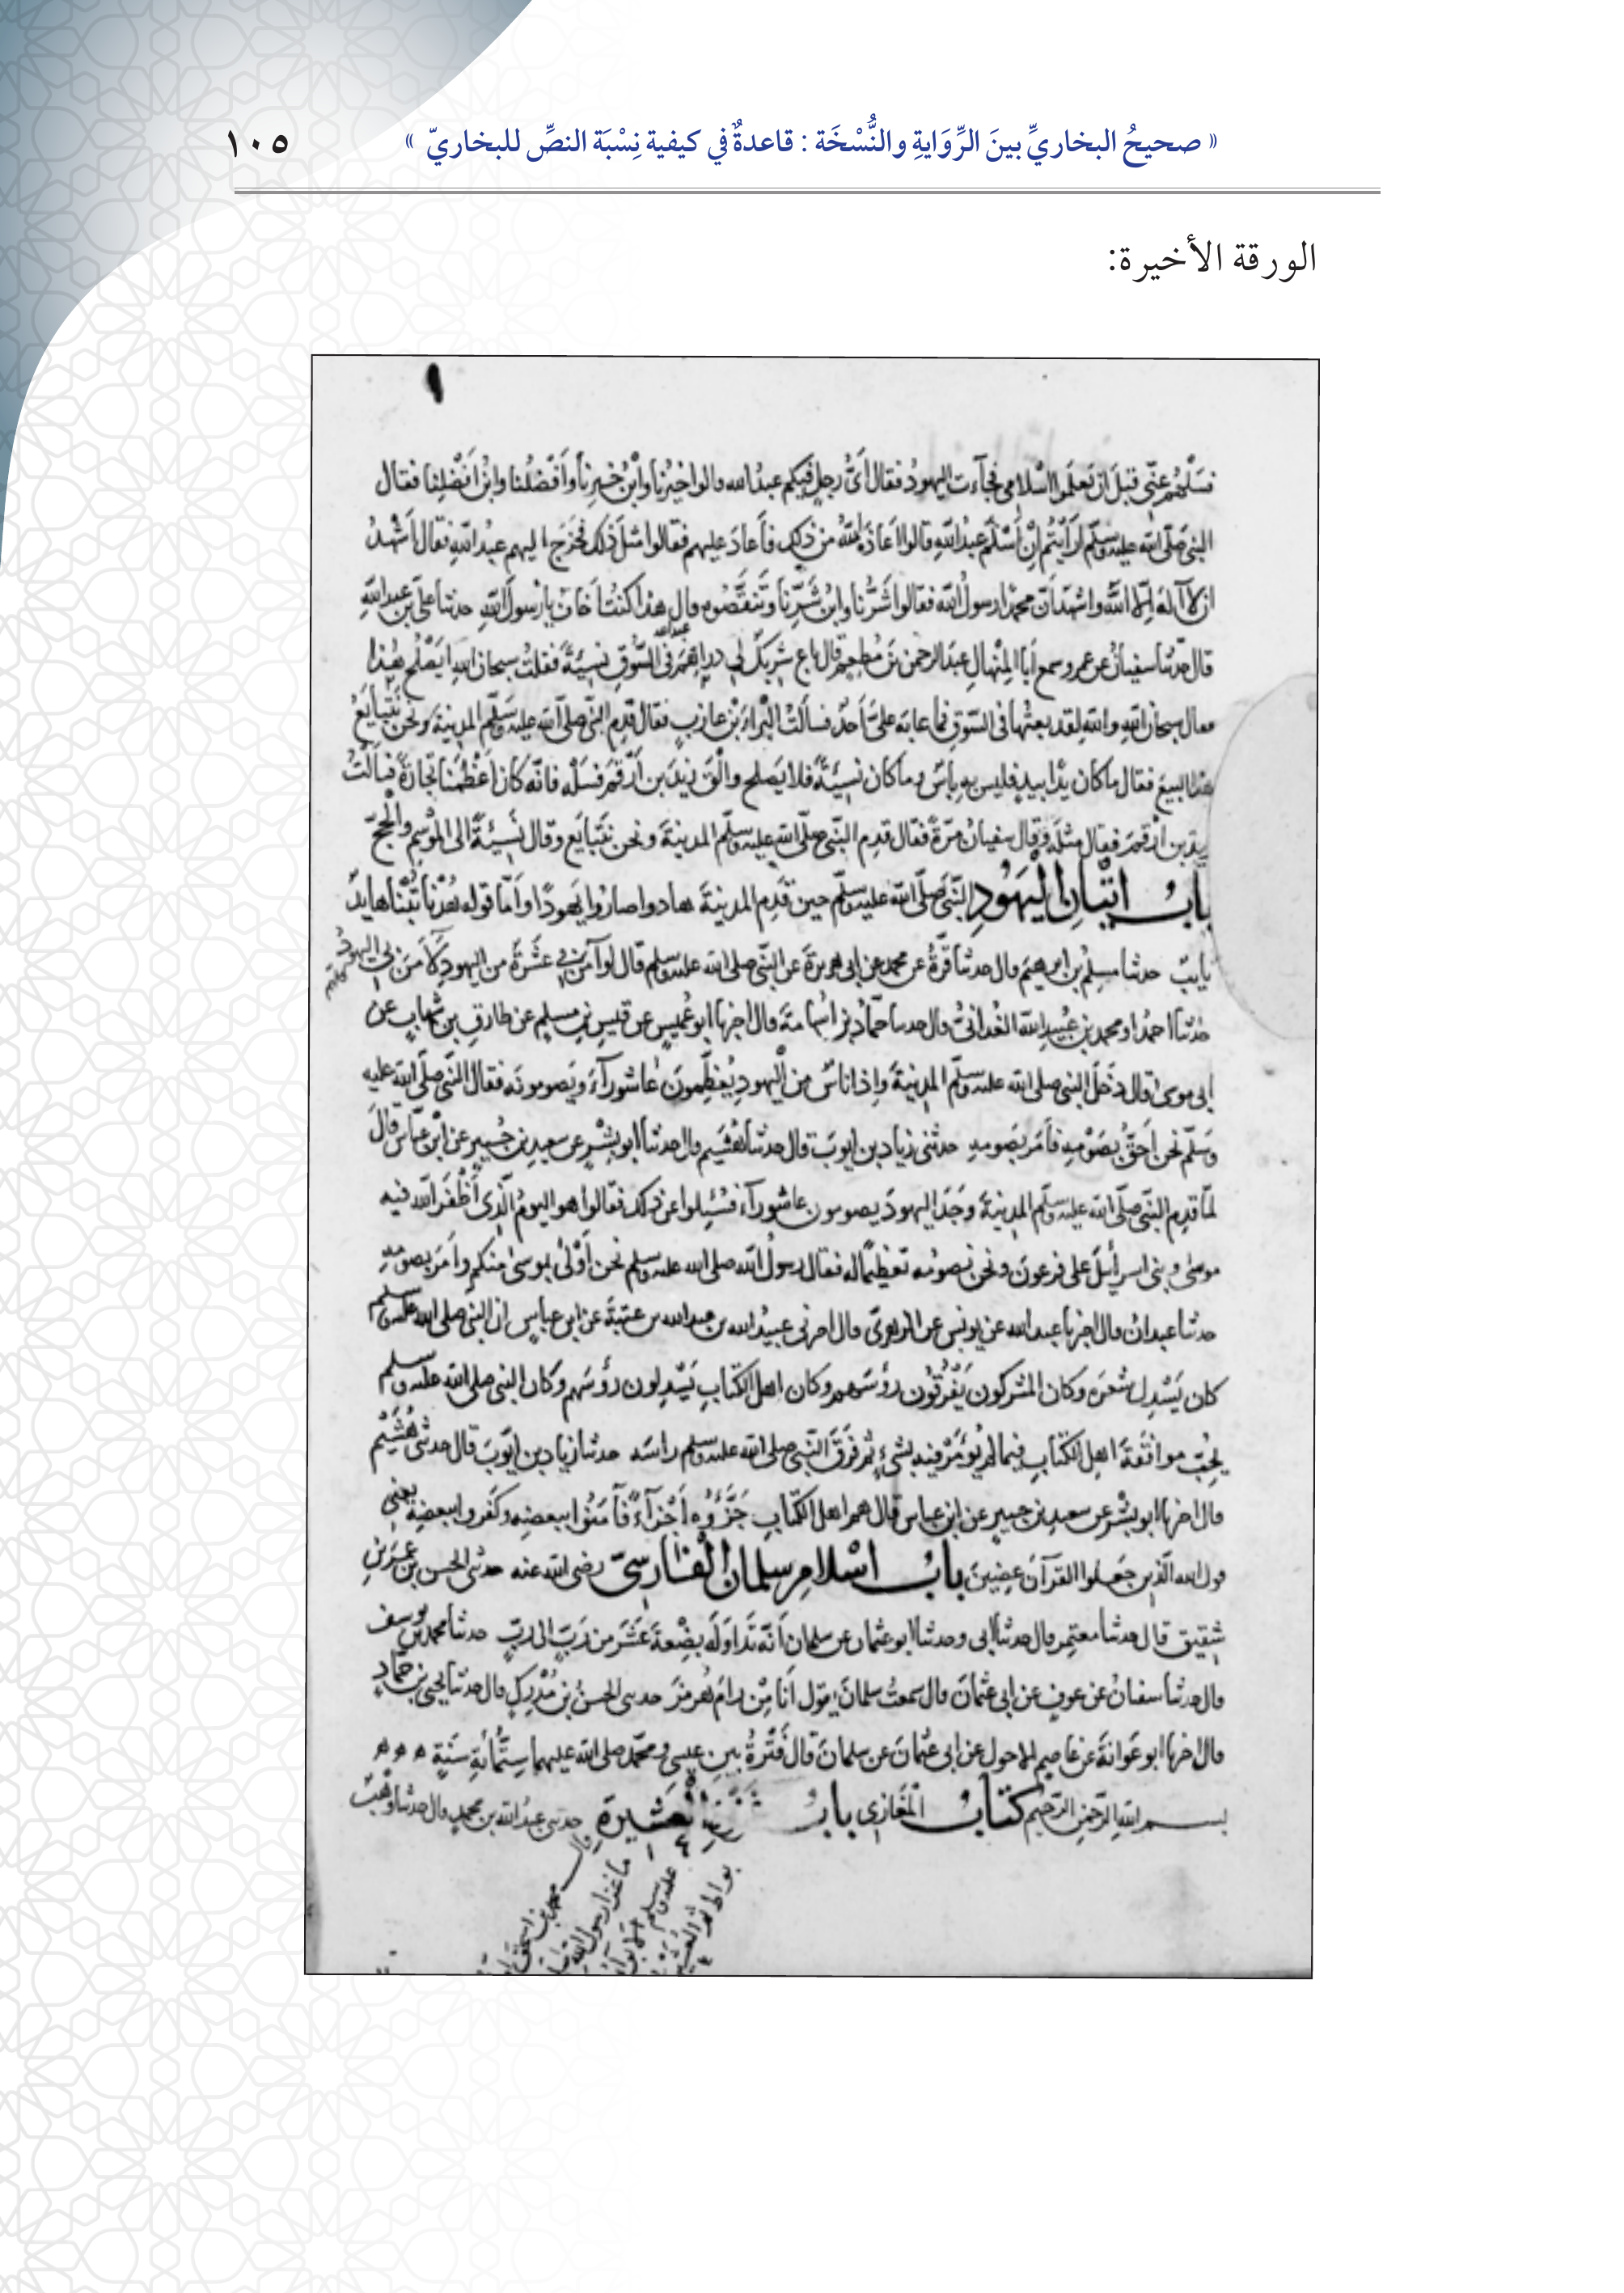 « صحيحُ البخاريِّ بينَ الرِّوَايةِ والنُّسْخَة : قاعدةٌ في كيفية نِسْبَة النصِّ للبخاريّ » ١٠٥
الورقة الأخيرة:
فسَلْهُم عنّي قبلَ ان تعلَموا اسْلامي فجآءت اليهودُ فقال اىُّ رجلٍ فيكم عبدُ الله قالوا خيرُنا وابْنُ خيرِنا وأفضَلُنا وابنُ أفضلِنا فقال
النبى صَلّى الله عليه وسلّم أرأيتُم انْ أَسْلَم عبدُ اللهِ قالوا اعاذَه اللهُ من ذلك فأعادَ عليهم فقالوا مثلَ ذلك فخرَج اليهم عبدُ اللهِ فقال اشهدُ
ان لا آله الا الله واشهد أنّ محمدًا رسولُ الله فقالوا شَرُّنا وابنُ شَرِّنا وتنقَّصُوه قال هذا كنتُ اخافُ يا رسولَ اللهِ حدثنا على بن عبد اللهِ
قال حدثنا سفيانُ عن عمرو سمع أبا المِنْهالِ عبدَ الرحمن بنَ مُطعِمٍ قال باع شريكٌ لى دراهمَ فى السُّوقِ نسِيئةً فقلتُ سبحان اللهِ ايَصْلُح هذا
فقال سبحان اللهِ واللهِ لقد بعتُها فى السّوق فما عابه علىَّ أحدٌ فسألتُ البَراءَ بْنَ عازبٍ فقال قدِم النبى صلى الله عليه وسَلّم المدينةَ ونحن نَتبايَعُ
هذا البيعَ فقال ما كان يدًا بيدٍ فليس به بأسٌ وما كان نسِيئةً فلا يَصلح والْقَ زيدَ بن أرْقَمَ فسَلْه فانّه كان أعْظمَنا تجارةً فسألتُ
زيد بن ارْقمَ فقال مثلَه وقال سفيانُ مرّةً فقال قدِم النبّى صلّى الله عليه وسلّم المدينةَ ونحن نَتَبايَع وقال نَسِيئةً الى المَوْسِمِ والْحَجّ
بابُ اتْيانِ اليَهُودِ النّبىَّ صَلّى الله عليه وسلّم حين قَدِم المدينةَ هادوا صاروا يَهودًا وأمّا قوله هُدْنا تُبْنا هايدٌ
تايبٌ حدثنا مسلِمُ بن ابرهيم قال حدثنا قُرَّةُ عن محمدٍ عن ابى هريرةَ عن النبّى صلى الله عليه وسلم قال لو آمَن بى عَشَرَةٌ من اليهودِ لآمَنَ بى اليهودُ
حدثنا احمدُ او محمدُ بن عُبيدِ الله الغُدانىُّ قال حدثنا حمّادُ بن اسامةَ قال اخبرنا ابو عُميسٍ عن قيسِ بن مسلِمٍ عن طارقِ بن شهابٍ عن
ابى موسى قال دَخَل النبى صلى الله عليه وسلّم المدينةَ واذا ناسٌ من اليهودِ يُعظّمونَ عاشورآءَ ويَصومونَه فقال النبّى صلّى الله عليه
وسَلّم نحن احَقُّ بصَوْمِه فأمَر بصَومِه حدثنى زياد بن ايوبَ قال حدثنا هُشَيم قال حدثنا ابو بِشْرٍ عن سعيدِ بن جُبيرٍ عن ابْنِ عبّاس قالَ
لمّا قدِم النبّى صلّى الله عليه وسلّم المدينةَ وَجَدَ اليهودَ يصومون عاشورآءَ فسُئِلوا عن ذلك فقالوا هو اليومُ الّذى أظْفَرَ الله فيه
موسى وبنى اسرآئيلَ على فرعونَ ونحن نصومُه تعظيمًا له فقال رسولُ الله صلى الله عليه وسلم نحن أوْلىٰ بموسى منكم وأمَر بصومِه
حدثنا عبدانُ قال اخبرنا عبد الله عن يونس عن الزهرىّ قال اخبرنى عبيدُ الله بن عبد الله بن عتبةَ عن ابن عباسٍ ان النبى صلى الله عليه وسلم
كان يَسْدِل شعرَه وكان المشركون يَفْرُقُون رؤسَهم وكان اهل الكتابِ يَسْدِلون رؤسَهم وكان النبى صلى الله عليه وسلم
يُحِبّ موافَقةَ اهل الكتابِ فيما لم يُؤمَرْ فيه بشىءٍ ثم فَرَقَ النّبى صلى الله عليه وسلم راسَه حدثنا زياد بن ايّوبَ قال حدثنى هُشَيْم
قال اخبرنا ابو بِشْرٍ عن سعيد بن جبيرٍ عن ابن عباس قال هم اهل الكتابِ جَزَّؤُه أجْزآءً فآمَنُوا ببعضِه وكفروا ببعضِه يعنى
قول الله الّذين جَعَلوا القرآنَ عضِينَ بابُ اسْلامِ سلمان الفارسىّ رضى الله عنه حدثنى الحسن بن عُمَرَ بنِ
شقيق قال حدثنا معتمِر قال حدثنا ابى وحدثنا ابو عثمان عن سلمان أنّه تَداوَلَه بِضْعةَ عَشَرَ من رَبٍّ الى ربٍّ حدثنا محمد بن يوسف
قال حدثنا سفيانُ عن عوفٍ عن ابى عثمانَ قال سمعتُ سلمانَ يقول انا مِنْ رامَ هُرمزَ حدثنى الحسنُ بن مُدْرِكٍ قال حدثنا يحيى بن حمّادٍ
قال اخبرنا ابو عَوانةَ عن عاصِمٍ الاحول عن ابى عثمانَ عن سلمانَ قال فَتْرةُ بين عيسى ومحمّد صلى الله عليهما سِتُّمائةِ سَنَةٍ ه ه ه
بسم الله الرّحمن الرّحيم كتابُ المَغازى بابُ العُشَيْرَة حدثنى عبدُ الله بن محمدٍ قال حدثنا وهْبٌ
قال محمد بن اسحق
ما غزا رسول الله
عليه وسلم الابوآء
بواط ثم العشيرة